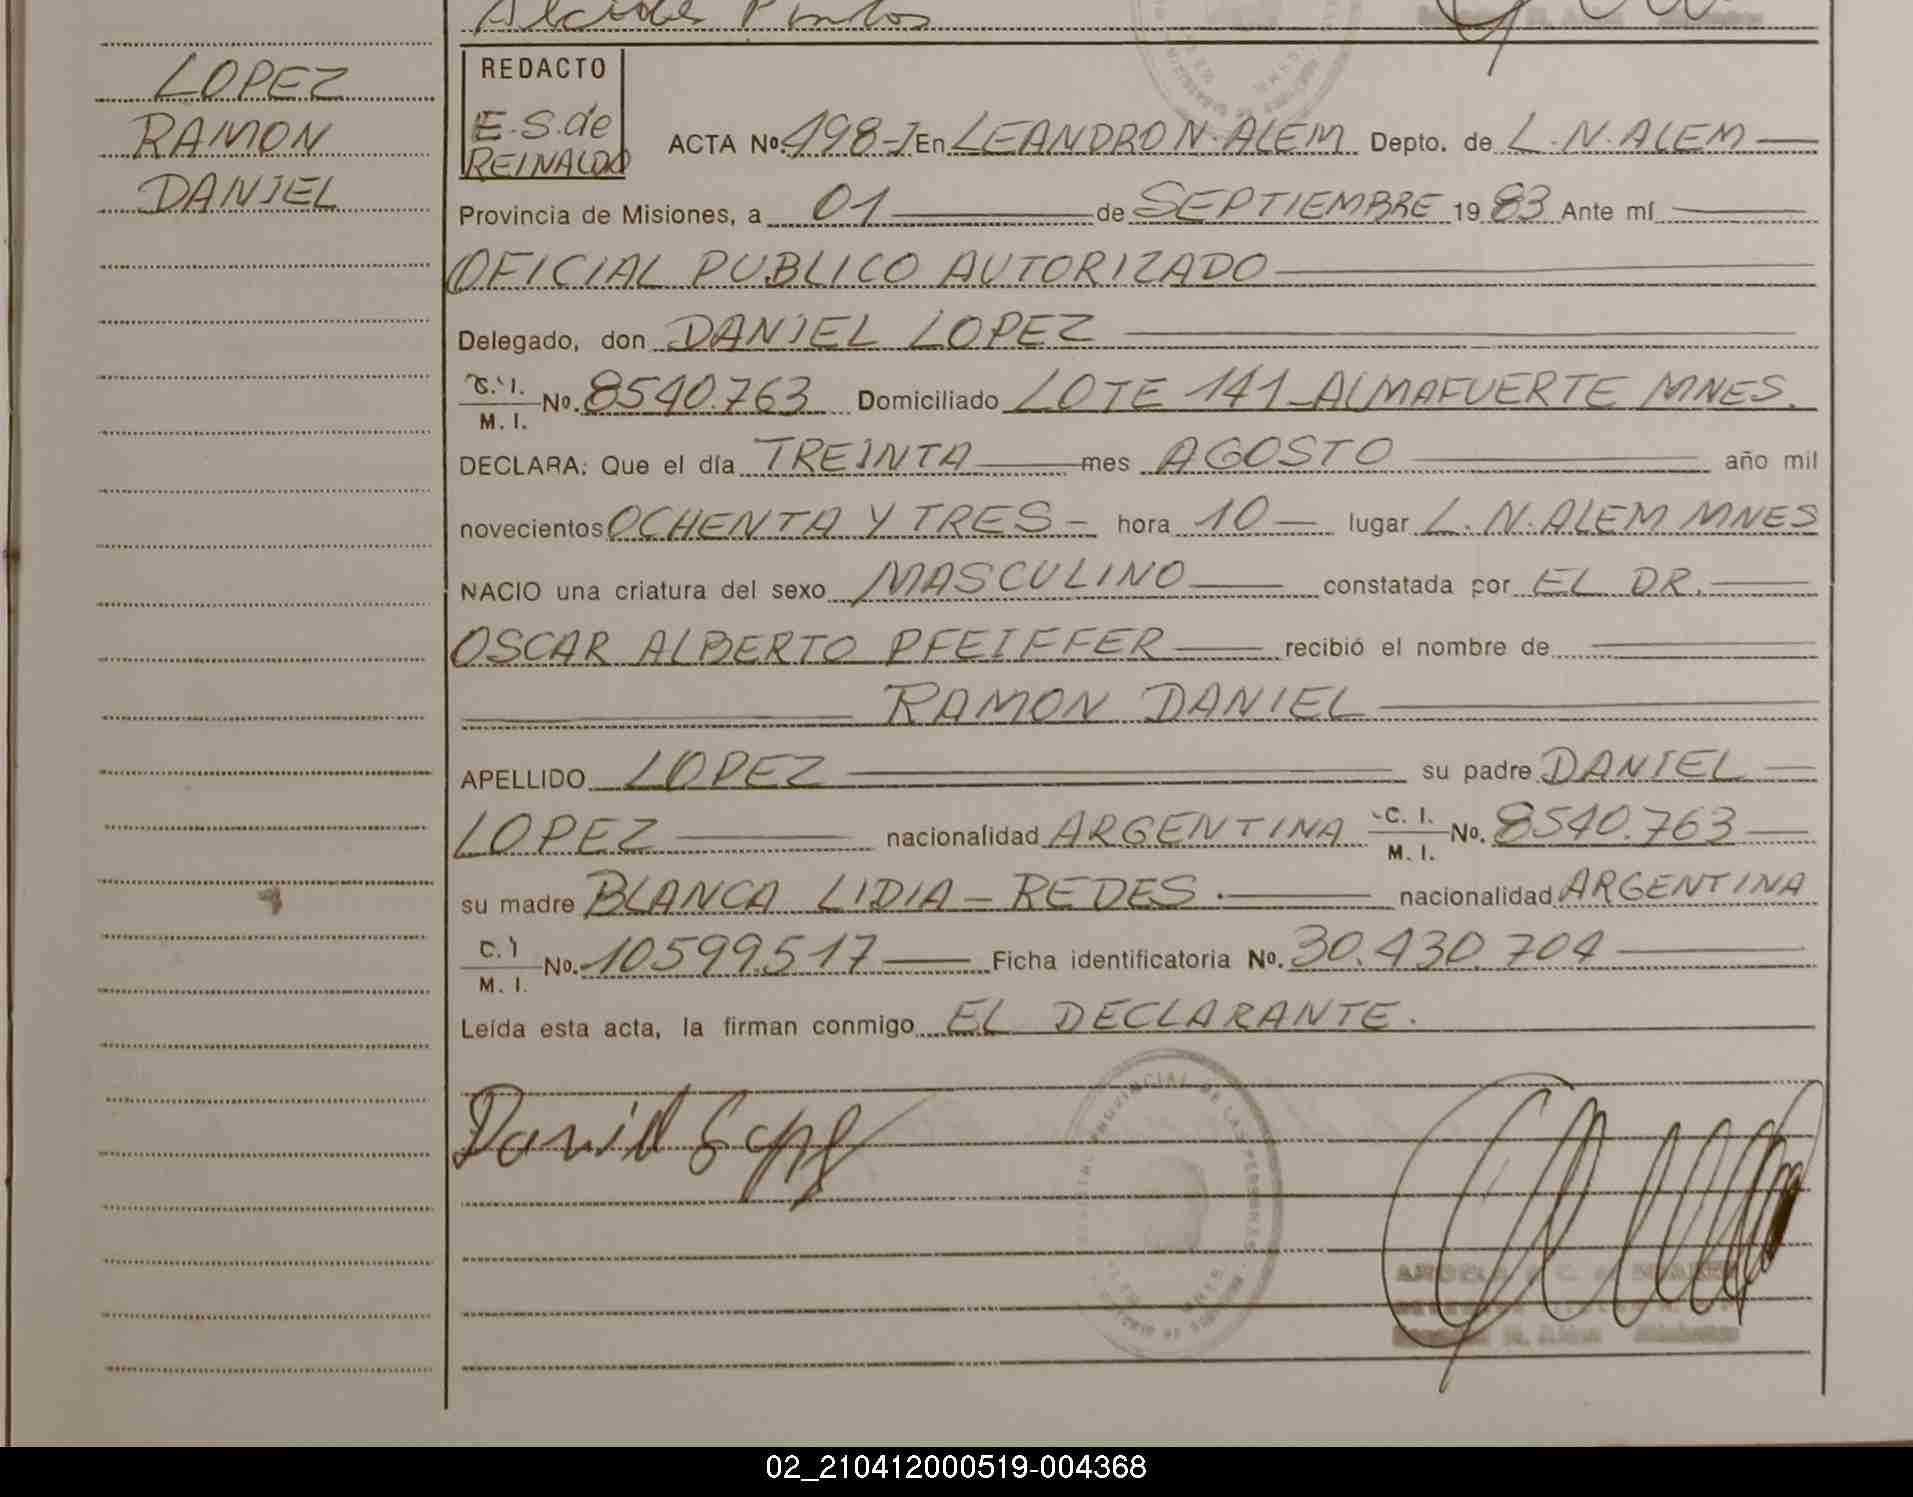 Alcides Pintos
LOPEZ
RAMON
DANIEL
REDACTO
E.S.de
REINALDO
ACTA Nº 498-I En LEANDRO N. ALEM Depto. de L.N. ALEM
Provincia de Misiones, a 01 de SEPTIEMBRE 1983 Ante mí
OFICIAL PUBLICO AUTORIZADO
Delegado, don DANIEL LOPEZ
C.I. M.I. Nº. 8540.763 Domiciliado LOTE 141-ALMAFUERTE MNES.
DECLARA: Que el día TREINTA mes AGOSTO año mil
novecientos OCHENTA Y TRES - hora 10 lugar L.N. ALEM MNES
NACIO una criatura del sexo MASCULINO constatada por EL DR.
OSCAR ALBERTO PFEIFFER recibió el nombre de
RAMON DANIEL
APELLIDO LOPEZ su padre DANIEL
LOPEZ nacionalidad ARGENTINA C.I. M.I. Nº. 8540.763
su madre BLANCA LIDIA - REDES. nacionalidad ARGENTINA
C.I M.I. Nº. 10599.517 Ficha identificatoria Nº. 30.430.704
Leída esta acta, la firman conmigo EL DECLARANTE.
02_210412000519-004368